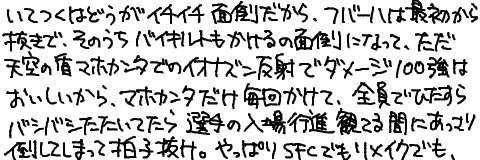 いてつくはどうがイチイチ面倒だから、フバーハは最初から
抜きで、そのうちバイキルトもかけるの面倒になって、ただ
天空の盾マホカンタでのイオナズン反射でダメージ100強は
おいしいから、マホカンタだけ毎回かけて、全員でひたすら
バシバシたたいてたら選手の入場行進観てる間にあっさり
倒してしまって拍子抜け。やっぱりSFCでもリメイクでも、